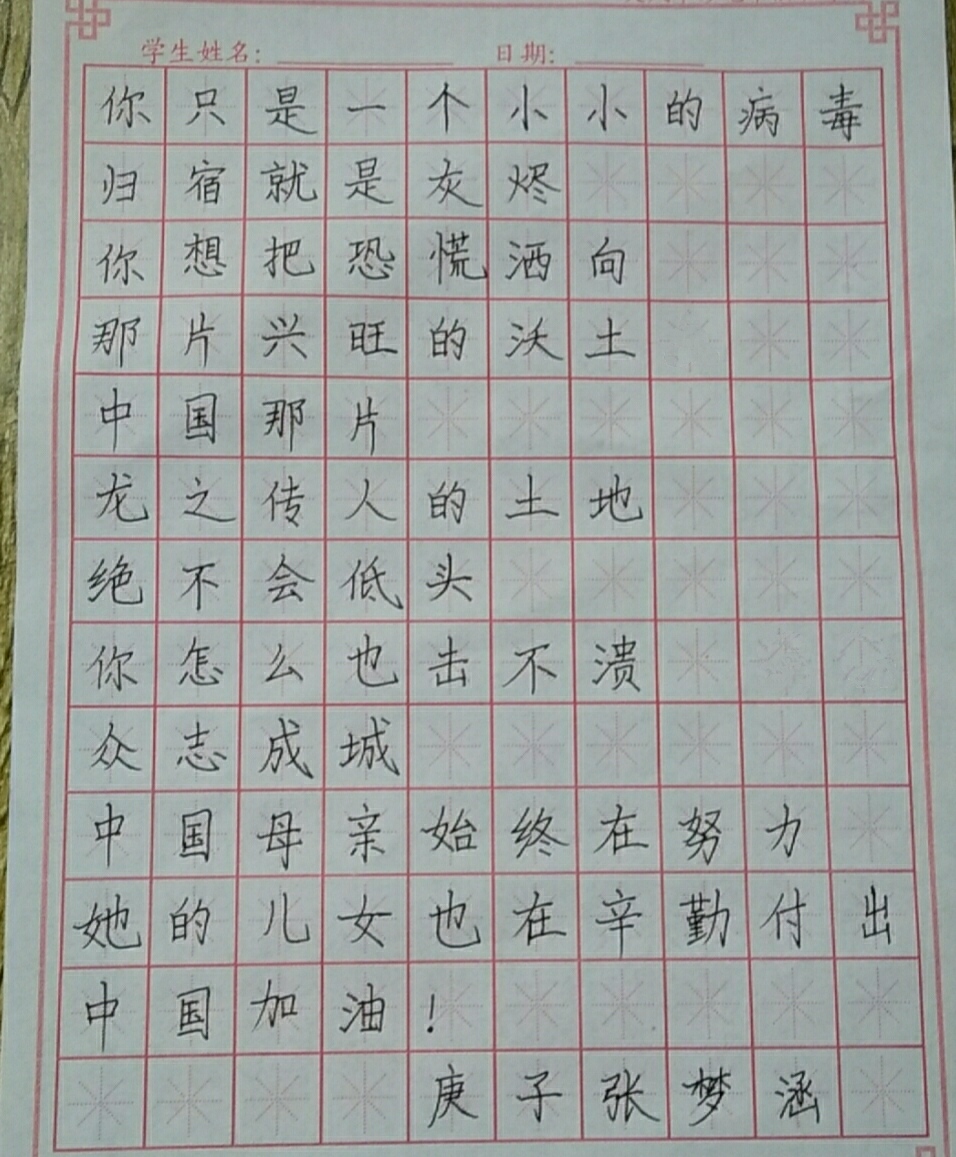 学生姓名: 日期:
你只是一个小小的病毒
归宿就是灰烬
你想把恐慌洒向
那片兴旺的沃土
中国那片
龙之传人的土地
绝不会低头
你怎么也击不溃
众志成城
中国母亲始终在努力
她的儿女也在辛勤付出
中国加油!
庚子张梦涵